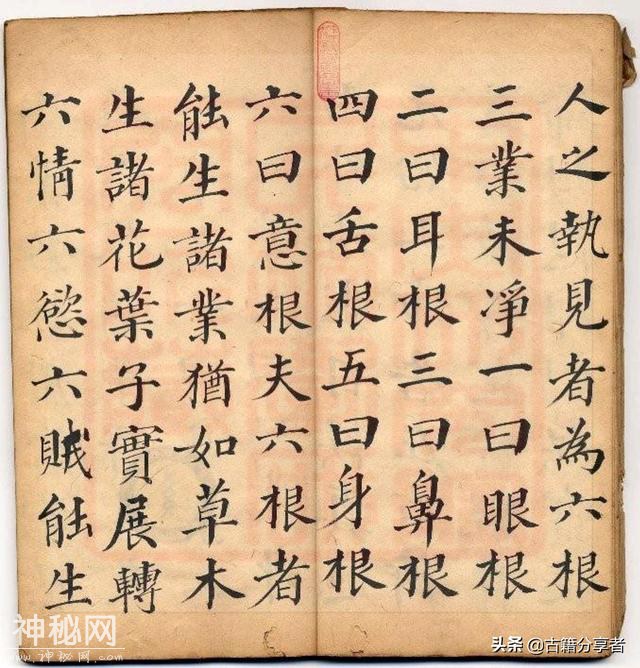 人之執見者為六根
三業未淨一曰眼根
二曰耳根三曰鼻根
四曰舌根五曰身根
六曰意根夫六根者
能生諸業猶如草木
生諸花葉子實展轉
六情六慾六賊能生
神秘网
www.shenmiwang.com
头条 @古籍分享者